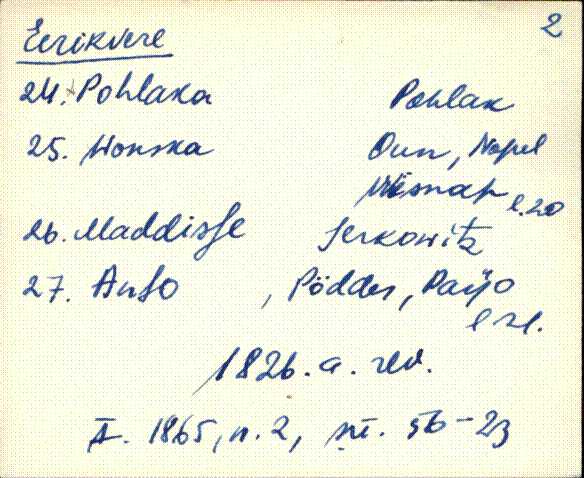 Eerikvere 2
24. Pohlaka Pohlak
25. Wonska Oun, Napel
Wisnap l. 20
26. Maddisse Serkowitz
27. Anso , Põdder, Paijo
l 21.
1826. a. rev.
I. 1865, n. 2, nr. 56-23